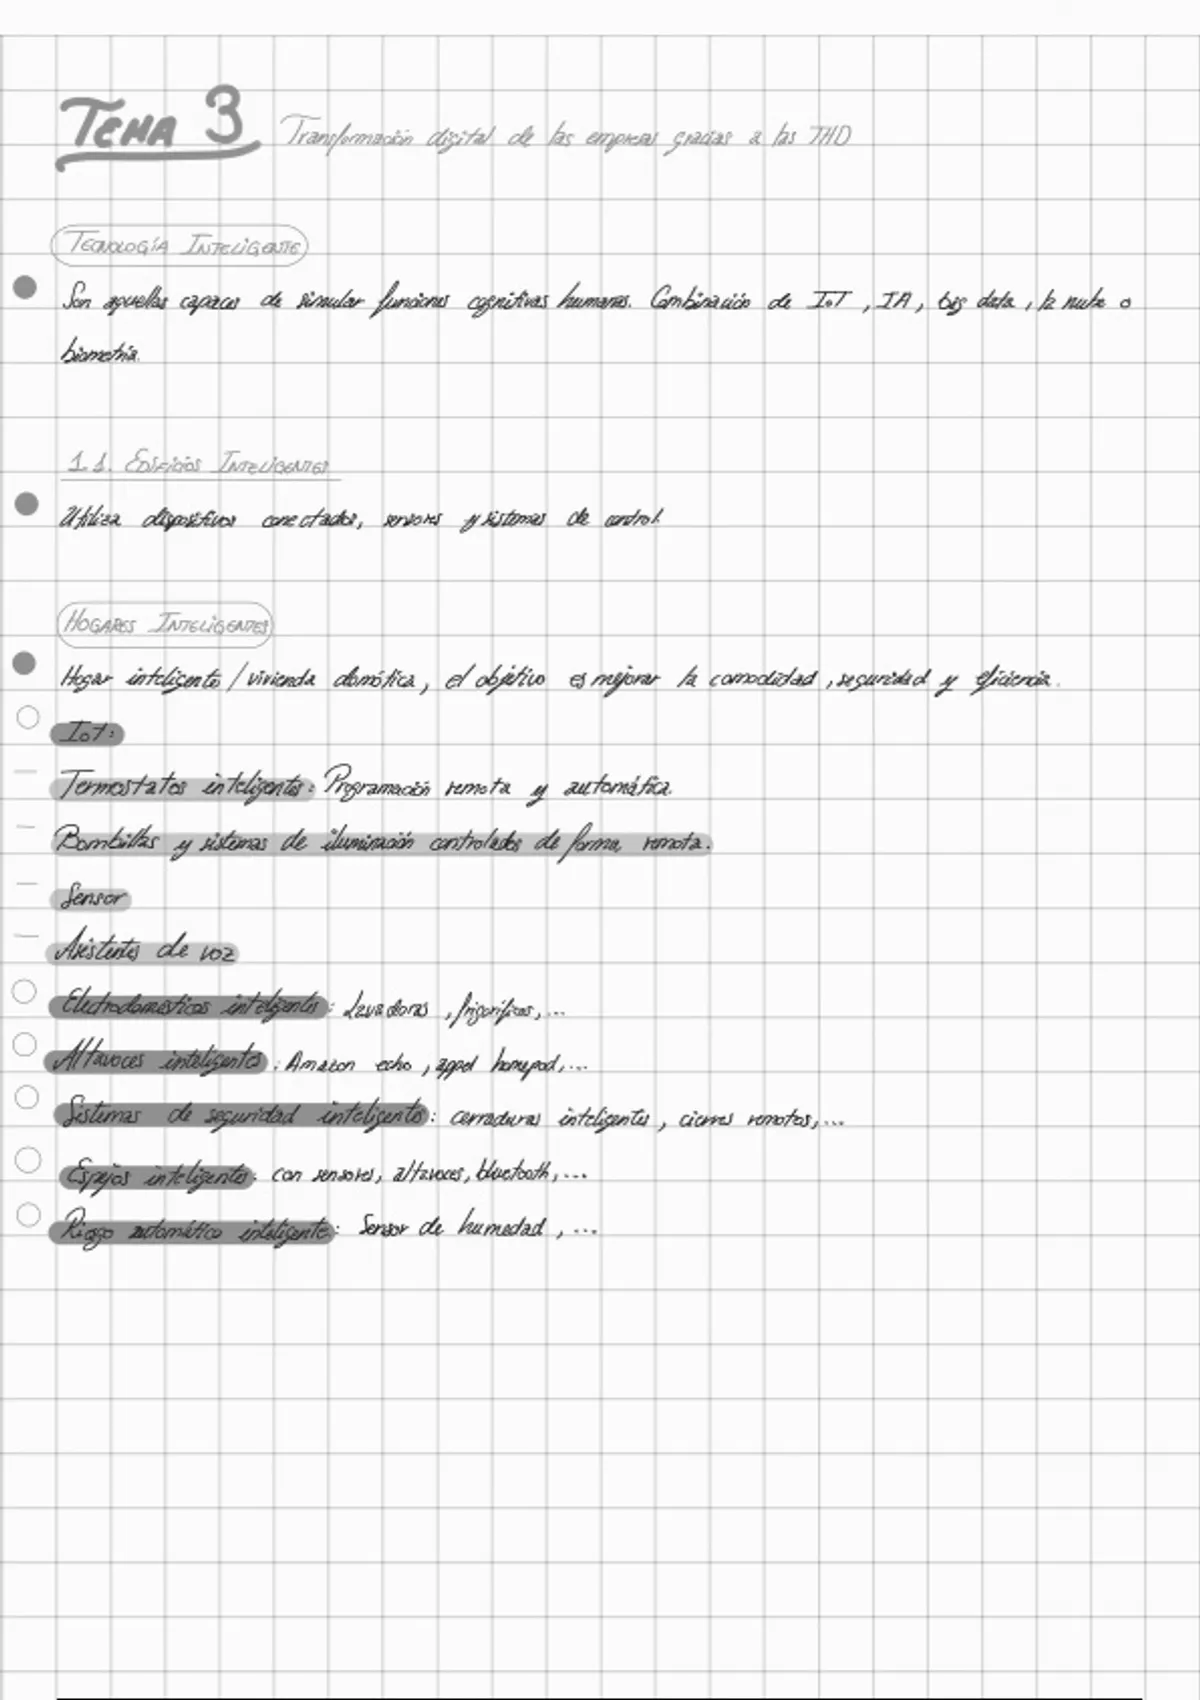 TEMA 3 Transformación digital de las empresas gracias a las THD
TECNOLOGÍA INTELIGENTE
Son aquellas capaces de simular funciones cognitivas humanas. Combinación de IoT, IA, big data, la nube o
biometría.
1.1. EDIFICIOS INTELIGENTES
Utiliza dispositivos conectados, sensores y sistemas de control.
HOGARES INTELIGENTES
Hogar inteligente / vivienda domótica, el objetivo es mejorar la comodidad, seguridad y eficiencia.
IoT:
Termostatos inteligentes: Programación remota y automática.
Bombillas y sistemas de iluminación controlados de forma remota.
Sensor
Asistentes de voz
Electrodomésticos inteligentes: Lavadoras, frigoríficos,...
Altavoces inteligentes: Amazon echo, appel homepod,...
Sistemas de seguridad inteligente: cerraduras inteligentes, cierres remotos,...
Espejos inteligentes: con sensores, altavoces, bluetooth,...
Riego automático inteligente: Sensor de humedad,...